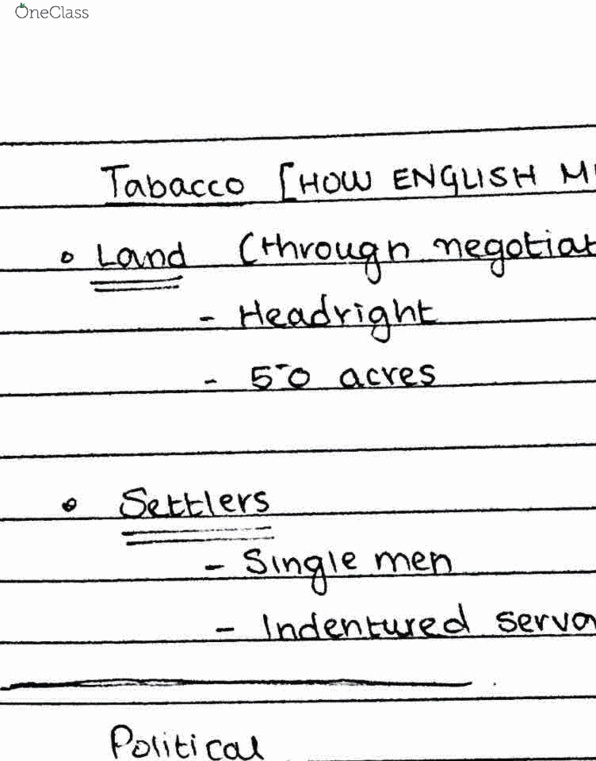 OneClass
Tabacco [HOW ENGLISH
• Land (through negotiat
- Headright
- 50 acres
• Settlers
- Single men
- Indentured serva
Political